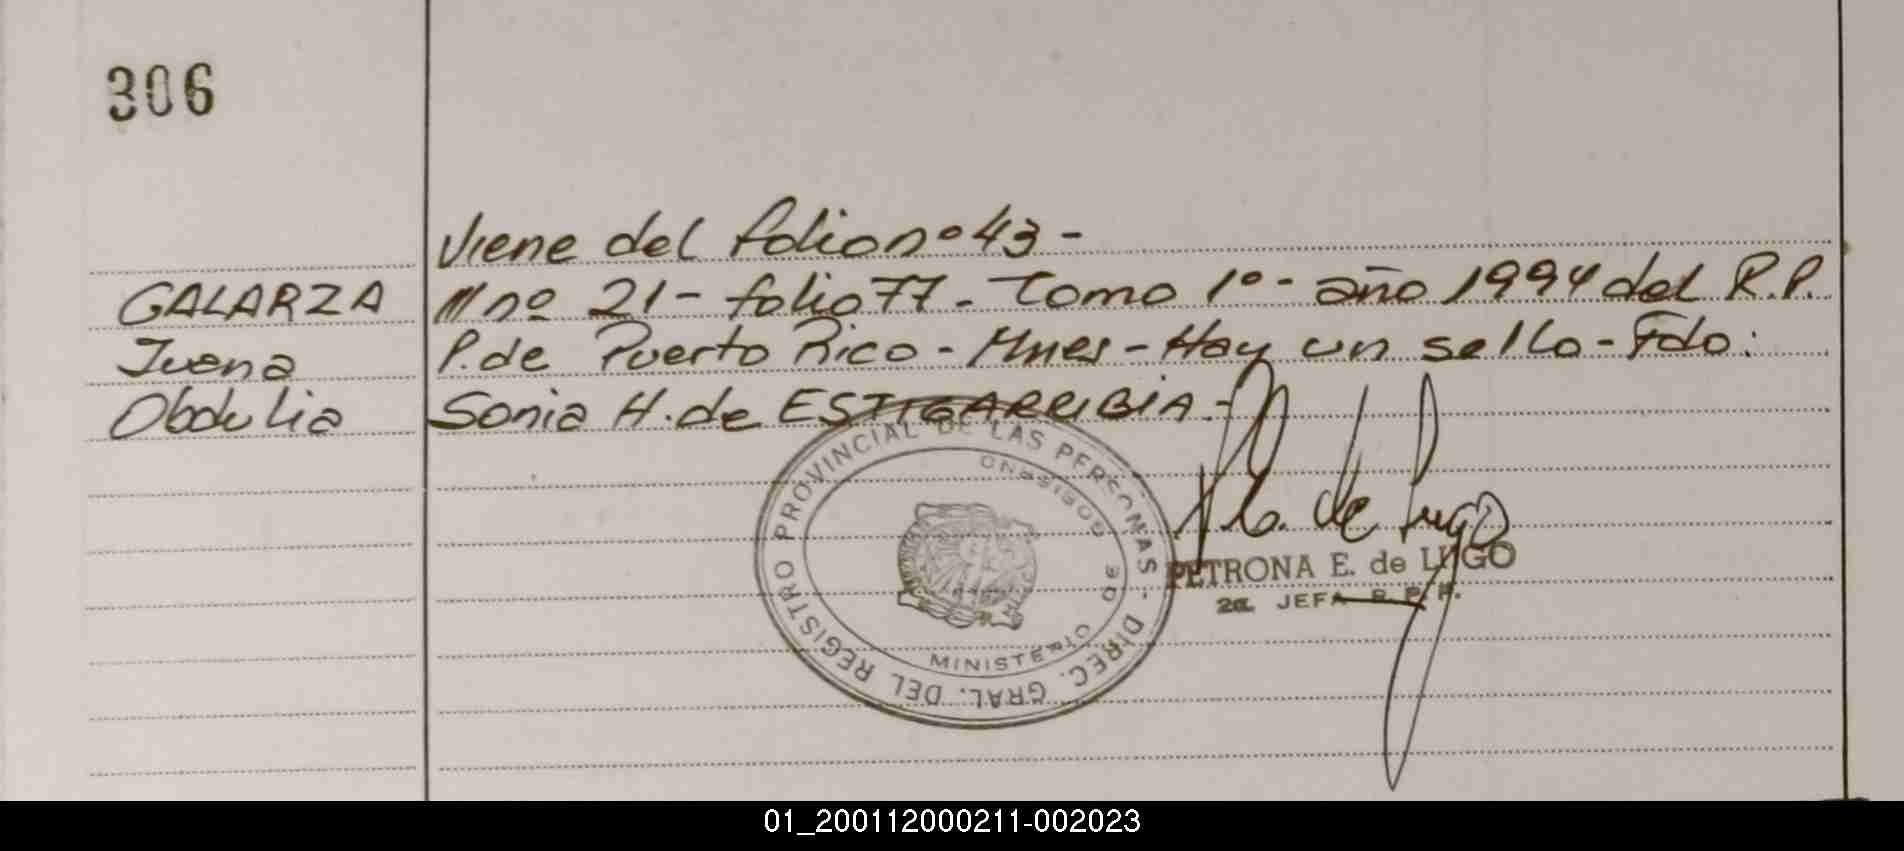 306
Viene del folio nº 43 -
GALARZA
Juana
Obdulia
/// nº 21 - folio 77 - Tomo 1º - año 1994 del R.P.
P. de Puerto Rico - Mnes - Hay un sello - Fdo:
Sonia H. de ESTIGARRIBIA.-
DIREC. GRAL. DEL REGISTRO PROVINCIAL DE LAS PERSONAS -
MINISTERIO DE GOBIERNO
de Lugo
PETRONA E. de LUGO
2a. JEFA R. P. P.
01_200112000211-002023